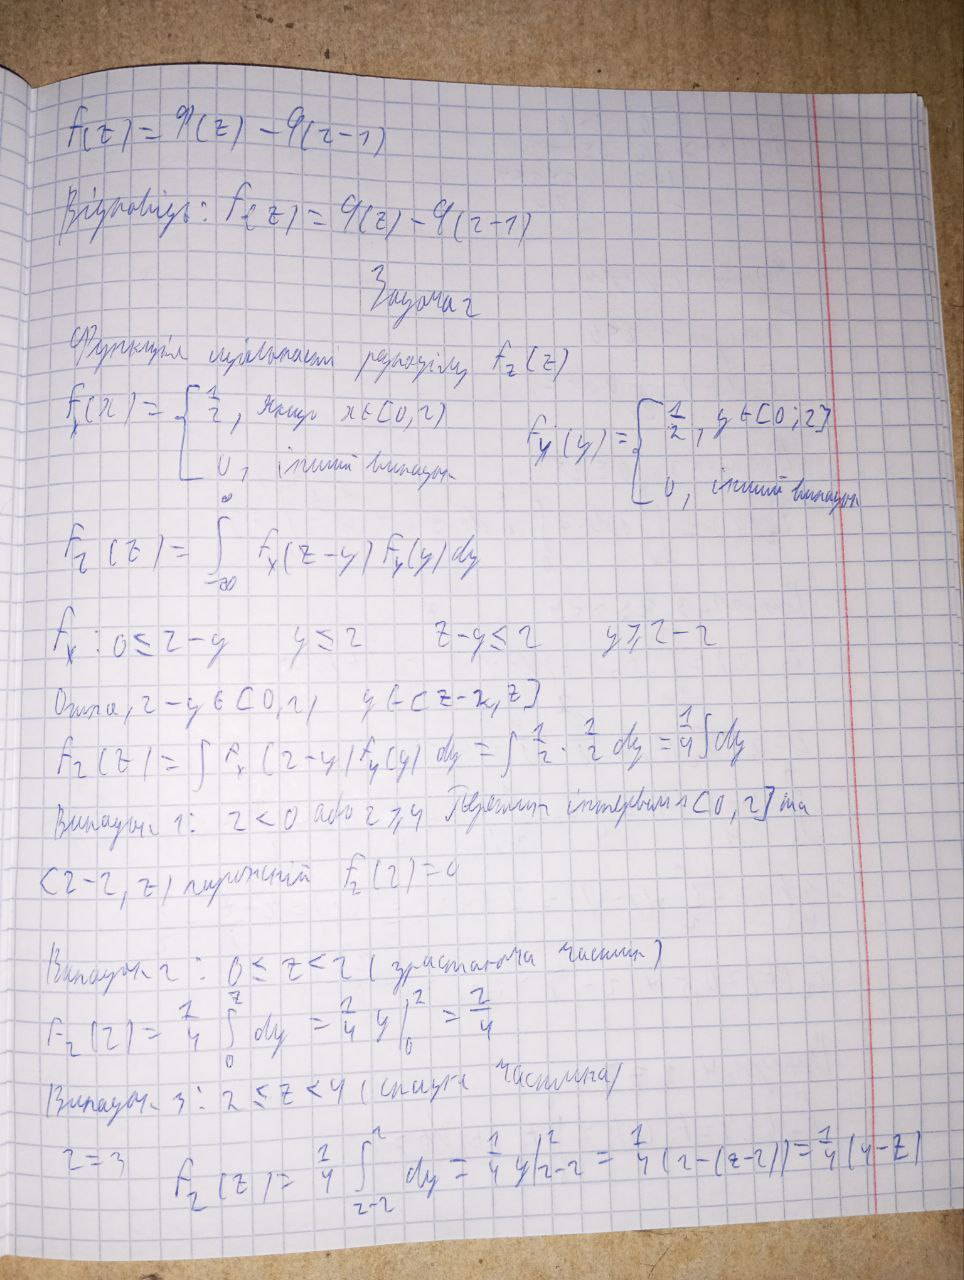 f(z) = φ(z) - φ(z-1)
Відповідь: f(z) = φ(z) - φ(z-1)
Задача 2
Функція щільності розподілу f_z(z)
f_x(x) = { 1/2, якщо x∈[0,2) ; 0, інший випадок
f_y(y) = { 1/2, y∈[0;2] ; 0, інший випадок
f_z(z) = ∫_{-∞}^{∞} f_x(z-y) f_y(y) dy
f_x: 0 ≤ z-y y ≤ z z-y ≤ 2 y ≥ z-2
Отже, z-y∈[0,2) y∈[z-2, z]
f_z(z) = ∫ f_x(z-y) f_y(y) dy = ∫ 1/2 · 1/2 dy = 1/4 ∫ dy
Випадок 1: z<0 або z ≥ 4 Перетин інтервалів [0,2] та
[z-2, z) порожній f_z(z) = 0
Випадок 2: 0 ≤ z < 2 (зростаюча частина)
f_z(z) = 1/4 ∫_0^z dy = 1/4 y|_0^z = z/4
Випадок 3: 2 ≤ z < 4 (спадна частина)
z=3 f_z(z) = 1/4 ∫_{z-2}^2 dy = 1/4 y|_{z-2}^2 = 1/4 (2-(z-2)) = 1/4 (4-z)